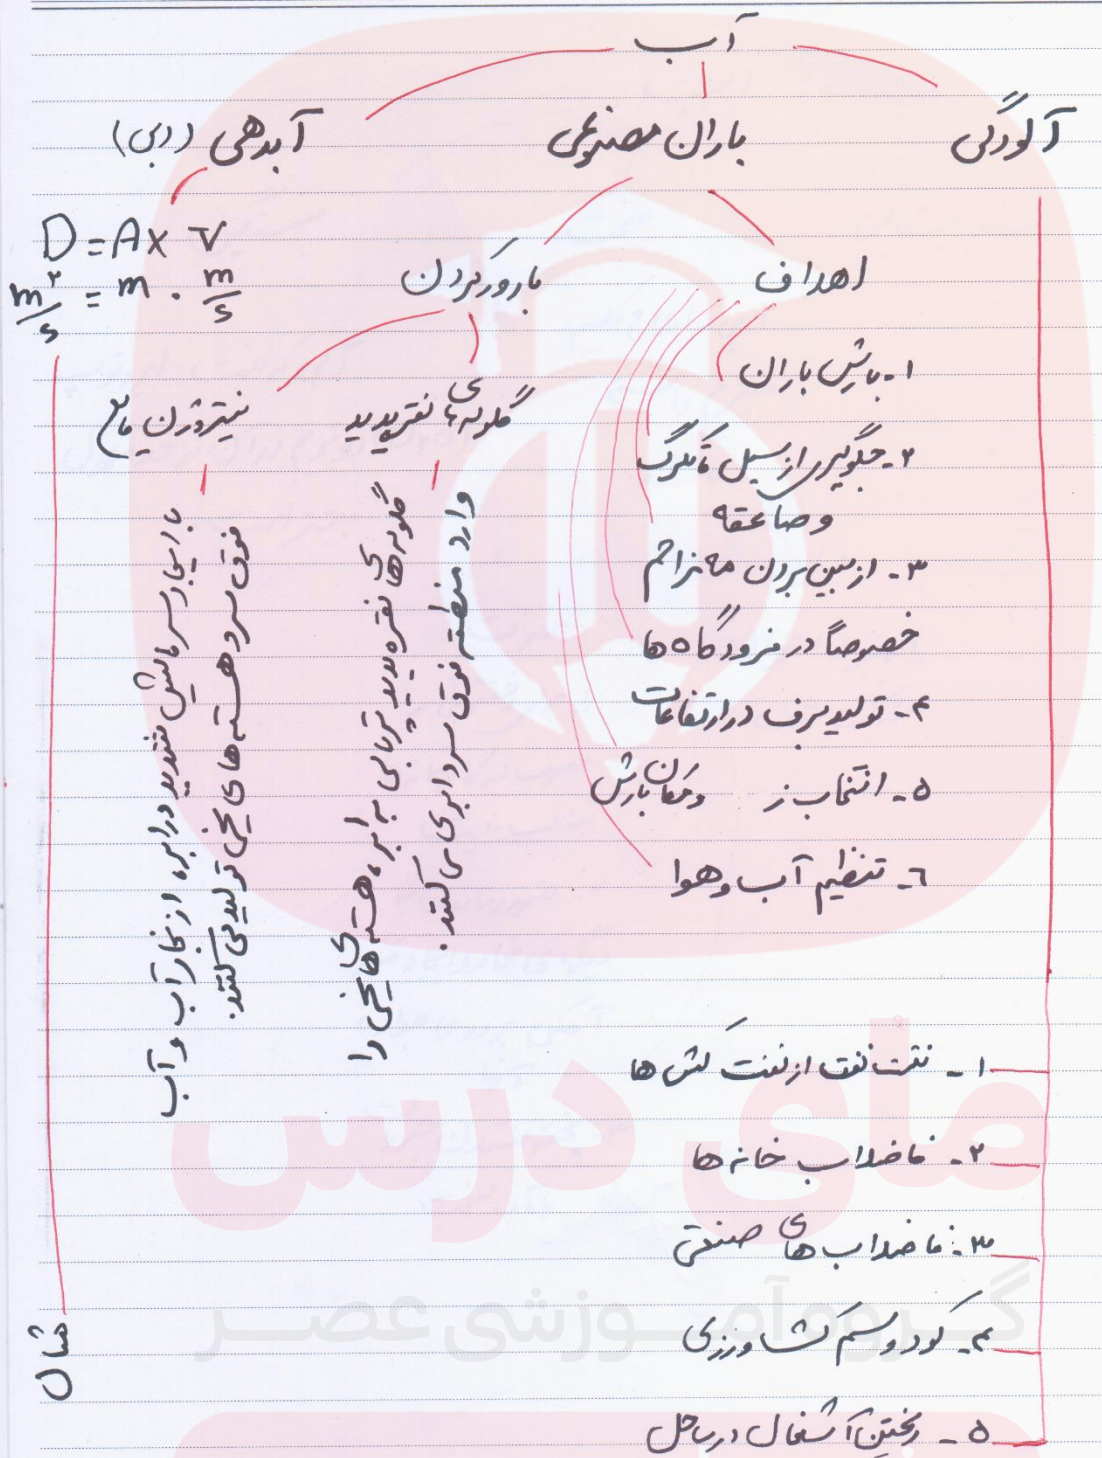 آب
آلودگی
باران مصنوعی
آبدهی (دبی)
D = A × V
m³/s = m² . m/s
اهداف
بارور کردن
۱- بارش باران
۲- جلوگیری از سیل تگرگ
و صاعقه
۳- از بین بردن مه تراکم
خصوصاً در فرودگاه ها
۴- تولید برف در ارتفاعات
۵- انتخاب ز و مکان بارش
۶- تنظیم آب و هوا
گلوله‌های نقره یدید
گلوله‌های نقره یدید پرتابی به ابر، هسته‌های یخی را
وارد منطقه فوق سرد ابری می کنند.
نیتروژن مایع
با ایجاد سرمایش شدید در ابر، از بخار آب و آب
فوق سرد هسته های یخی تولید می کنند.
۱- نشت نفت از نفت کش ها
۲- فاضلاب خانه ها
۳- فاضلاب های صنعتی
۴- کود و سم کشاورزی
۵- ریختن آشغال در ساحل
مثال
مای درس
گروه آموزشی عصر